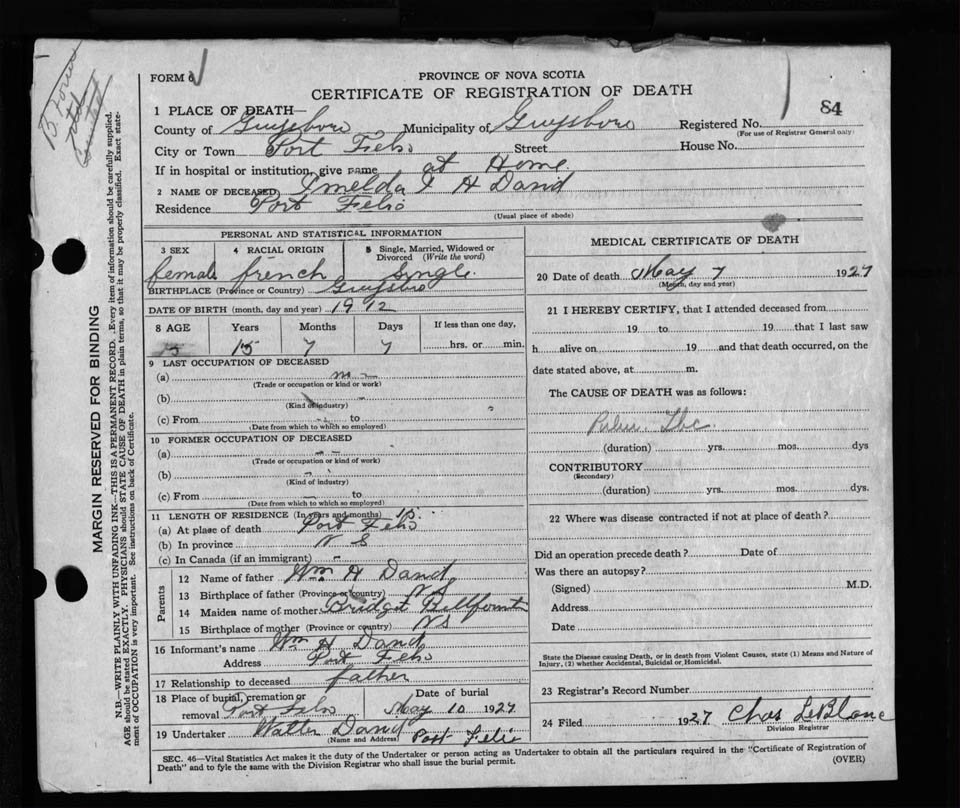 FORM 6
PROVINCE OF NOVA SCOTIA
CERTIFICATE OF REGISTRATION OF DEATH
84
1 PLACE OF DEATH—
County of Guysboro Municipality of Guysboro Registered No.
(For use of Registrar General only)
City or Town Port Felix Street House No.
If in hospital or institution, give name at Home
2 NAME OF DECEASED Imelda I H David
Residence Port Felix
(Usual place of abode)
PERSONAL AND STATISTICAL INFORMATION
3 SEX 4 RACIAL ORIGIN 5 Single, Married, Widowed or Divorced (Write the word)
female french single
BIRTHPLACE (Province or Country) Guysboro
DATE OF BIRTH (month, day and year) 1912
8 AGE Years Months Days If less than one day,
15 15 7 7 hrs. or min.
9 LAST OCCUPATION OF DECEASED
(a)
(Trade or occupation or kind or work)
(b)
(Kind of industry)
(c) From to
(Date from which to which so employed)
10 FORMER OCCUPATION OF DECEASED
(a)
(Trade or occupation or kind of work)
(b)
(Kind of industry)
(c) From to
(Date from which to which so employed)
11 LENGTH OF RESIDENCE (In years and months) 15
(a) At place of death Port Felix
(b) In province N S
(c) In Canada (if an immigrant)
Parents
12 Name of father Wm H David
13 Birthplace of father (Province or country) NS
14 Maiden name of mother Bridget
15 Birthplace of mother (Province or country) NS
16 Informant's name Wm H David
Address Port Felix
17 Relationship to deceased father
18 Place of burial, cremation or Date of burial
removal Port Felix May 10 1927
19 Undertaker Walter David Port Felix
(Name and Address)
MEDICAL CERTIFICATE OF DEATH
20 Date of death May 7 1927
(Month, day and year)
21 I HEREBY CERTIFY, that I attended deceased from
19 to 19 that I last saw
h alive on 19 and that death occurred, on the
date stated above, at m.
The CAUSE OF DEATH was as follows:
Pulm. Tbc.
(duration) yrs. mos. dys
CONTRIBUTORY
(Secondary)
(duration) yrs. mos. dys.
22 Where was disease contracted if not at place of death?
Did an operation precede death? Date of
Was there an autopsy?
(Signed) M.D.
Address
Date
State the Disease causing Death, or in death from Violent Causes, state (1) Means and Nature of
Injury, (2) whether Accidental, Suicidal or Homicidal.
23 Registrar's Record Number
24 Filed 1927 Chas LeBlanc
Division Registrar
SEC. 46—Vital Statistics Act makes it the duty of the Undertaker or person acting as Undertaker to obtain all the particulars required in the "Certificate of Registration of
Death" and to fyle the same with the Division Registrar who shall issue the burial permit.
(OVER)
MARGIN RESERVED FOR BINDING
N.B.—WRITE PLAINLY WITH UNFADING INK—THIS IS A PERMANENT RECORD. Every item of information should be carefully supplied.
AGE should be stated EXACTLY. PHYSICIANS should STATE CAUSE OF DEATH in plain terms, so that it may be properly classified. Exact state-
ment of OCCUPATION is very important. See instructions on back of Certificate.